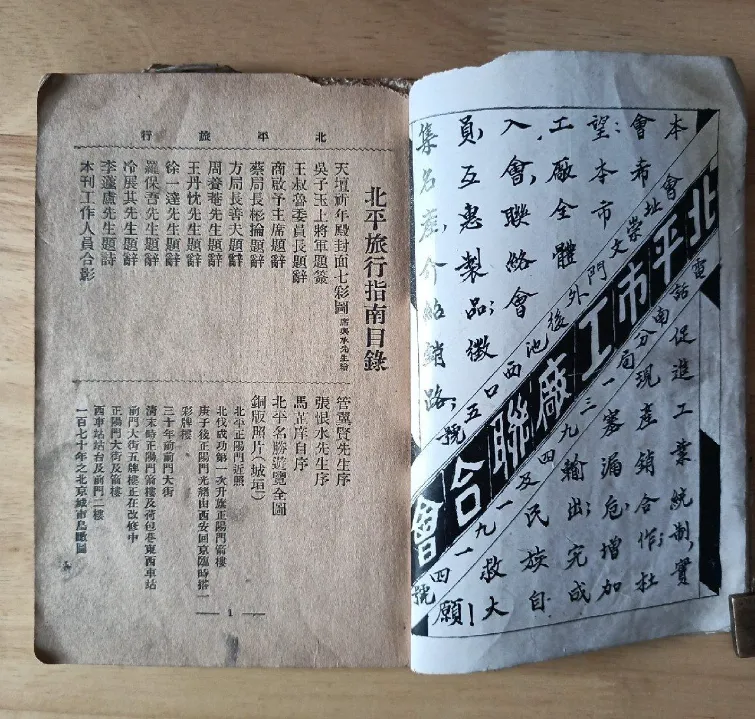 本會希望;本市工廠全體入會,聯絡會員,互惠製品;徵集名產,介紹銷路;
會址崇文門外後池西口五號
北平市工廠聯合會
電話南分局一三九四及一九一四號
促進工業統制,實現產銷合作;杜塞漏危,增加輸出;完成民族自救大願!
北平旅行
北平旅行指南目錄
天壇祈年殿封面七彩圖
吳子玉上將軍題簽
王叔魯委員長題辭
商啟予主席題辭
蔡局長極掄題辭
方局長善夫題辭
周養菴先生題辭
王丹忱先生題辭
徐一達先生題辭
羅保吾先生題辭
冷展其先生題辭
李蓬廬先生題詩
本刊工作人員合影
管翼賢先生序
張恨水先生序
馬芷庠自序
北平名勝遊覽全圖
銅版照片(城垣)
北平正陽門近照
北伐成功第一次升旗正陽門箭樓
庚子後正陽門光緒由西安回京臨時搭一
彩牌樓
三十年前前門大街
清末時正陽門箭樓及荷包巷東西車站
前門大街五牌樓正在改修中
正陽門大街及箭樓
西車站站台及前門二樓
一百七十年之北京城市鳥瞰圖
1